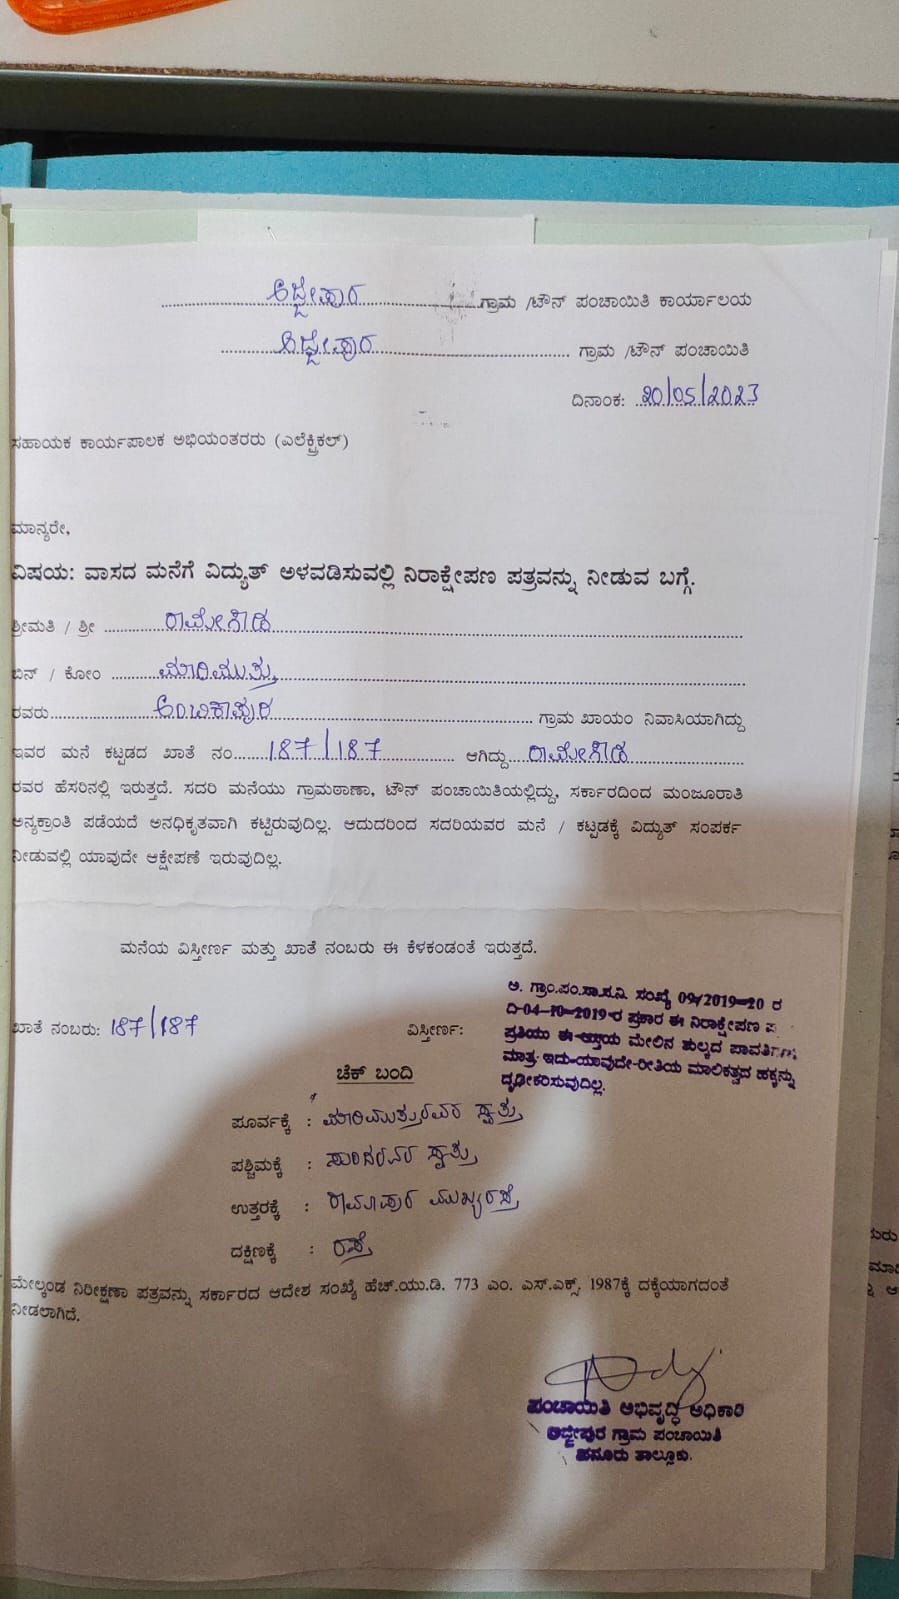 ಅಜ್ಜೀಪುರ ಗ್ರಾಮ /ಟೌನ್ ಪಂಚಾಯಿತಿ ಕಾರ್ಯಾಲಯ
ಅಜ್ಜೀಪುರ ಗ್ರಾಮ /ಟೌನ್ ಪಂಚಾಯಿತಿ
ದಿನಾಂಕ: 20/05/2023
ಸಹಾಯಕ ಕಾರ್ಯಪಾಲಕ ಅಭಿಯಂತರರು (ಎಲೆಕ್ಟ್ರಿಕಲ್)
ಮಾನ್ಯರೇ,
ವಿಷಯ: ವಾಸದ ಮನೆಗೆ ವಿದ್ಯುತ್ ಅಳವಡಿಸುವಲ್ಲಿ ನಿರಾಕ್ಷೇಪಣ ಪತ್ರವನ್ನು ನೀಡುವ ಬಗ್ಗೆ.
ಶ್ರೀಮತಿ / ಶ್ರೀ ರಾಮೇಗೌಡ
ಬಿನ್ / ಕೋಂ ಮಾರಿಮುತ್ತು
ರವರು ಅಂಬಿಕಾಪುರ ಗ್ರಾಮ ಖಾಯಂ ನಿವಾಸಿಯಾಗಿದ್ದು
ಇವರ ಮನೆ ಕಟ್ಟಡದ ಖಾತೆ ನಂ. 187/187 ಆಗಿದ್ದು ರಾಮೇಗೌಡ
ರವರ ಹೆಸರಿನಲ್ಲಿ ಇರುತ್ತದೆ. ಸದರಿ ಮನೆಯು ಗ್ರಾಮಠಾಣಾ, ಟೌನ್ ಪಂಚಾಯಿತಿಯಲ್ಲಿದ್ದು, ಸರ್ಕಾರದಿಂದ ಮಂಜೂರಾತಿ
ಅನ್ಯಕ್ರಾಂತಿ ಪಡೆಯದೆ ಅನಧಿಕೃತವಾಗಿ ಕಟ್ಟಿರುವುದಿಲ್ಲ. ಆದುದರಿಂದ ಸದರಿಯವರ ಮನೆ / ಕಟ್ಟಡಕ್ಕೆ ವಿದ್ಯುತ್ ಸಂಪರ್ಕ
ನೀಡುವಲ್ಲಿ ಯಾವುದೇ ಆಕ್ಷೇಪಣೆ ಇರುವುದಿಲ್ಲ.
ಮನೆಯ ವಿಸ್ತೀರ್ಣ ಮತ್ತು ಖಾತೆ ನಂಬರು ಈ ಕೆಳಕಂಡಂತೆ ಇರುತ್ತದೆ.
ಅ. ಗ್ರಾಂ.ಪಂ.ಸಾ.ಸ.ನಿ. ಸಂಖ್ಯೆ 09/2019-20 ರ
ದಿ-04-10-2019-ರ ಪ್ರಕಾರ ಈ ನಿರಾಕ್ಷೇಪಣ
ಪ್ರತಿಯು ಈ ಮೇಲಿನ ಶುಲ್ಕದ
ಮಾತ್ರ ಇದು-ಯಾವುದೇ-ರೀತಿಯ ಮಾಲಿಕತ್ವದ ಹಕ್ಕನ್ನು
ದೃಢೀಕರಿಸುವುದಿಲ್ಲ.
ಖಾತೆ ನಂಬರು: 187/187 ವಿಸ್ತೀರ್ಣ:
ಚೆಕ್ ಬಂದಿ
ಪೂರ್ವಕ್ಕೆ : ಮಾರಿಮುತ್ತುರವರ ಸ್ವತ್ತು
ಪಶ್ಚಿಮಕ್ಕೆ : ಸ್ವತ್ತು
ಉತ್ತರಕ್ಕೆ : ರಾಮಾಪುರ ಮುಖ್ಯರಸ್ತೆ
ದಕ್ಷಿಣಕ್ಕೆ : ರಸ್ತೆ
ಮೇಲ್ಕಂಡ ನಿರೀಕ್ಷಣಾ ಪತ್ರವನ್ನು ಸರ್ಕಾರದ ಆದೇಶ ಸಂಖ್ಯೆ ಹೆಚ್.ಯು.ಡಿ. 773 ಎಂ. ಎಸ್.ಎಕ್ಸ್. 1987ಕ್ಕೆ ದಕ್ಕೆಯಾಗದಂತೆ
ನೀಡಲಾಗಿದೆ.
ಪಂಚಾಯಿತಿ ಅಭಿವೃದ್ಧಿ ಅಧಿಕಾರಿ
ಅಜ್ಜೀಪುರ ಗ್ರಾಮ ಪಂಚಾಯಿತಿ
ಹನೂರು ತಾಲ್ಲೂಕು.